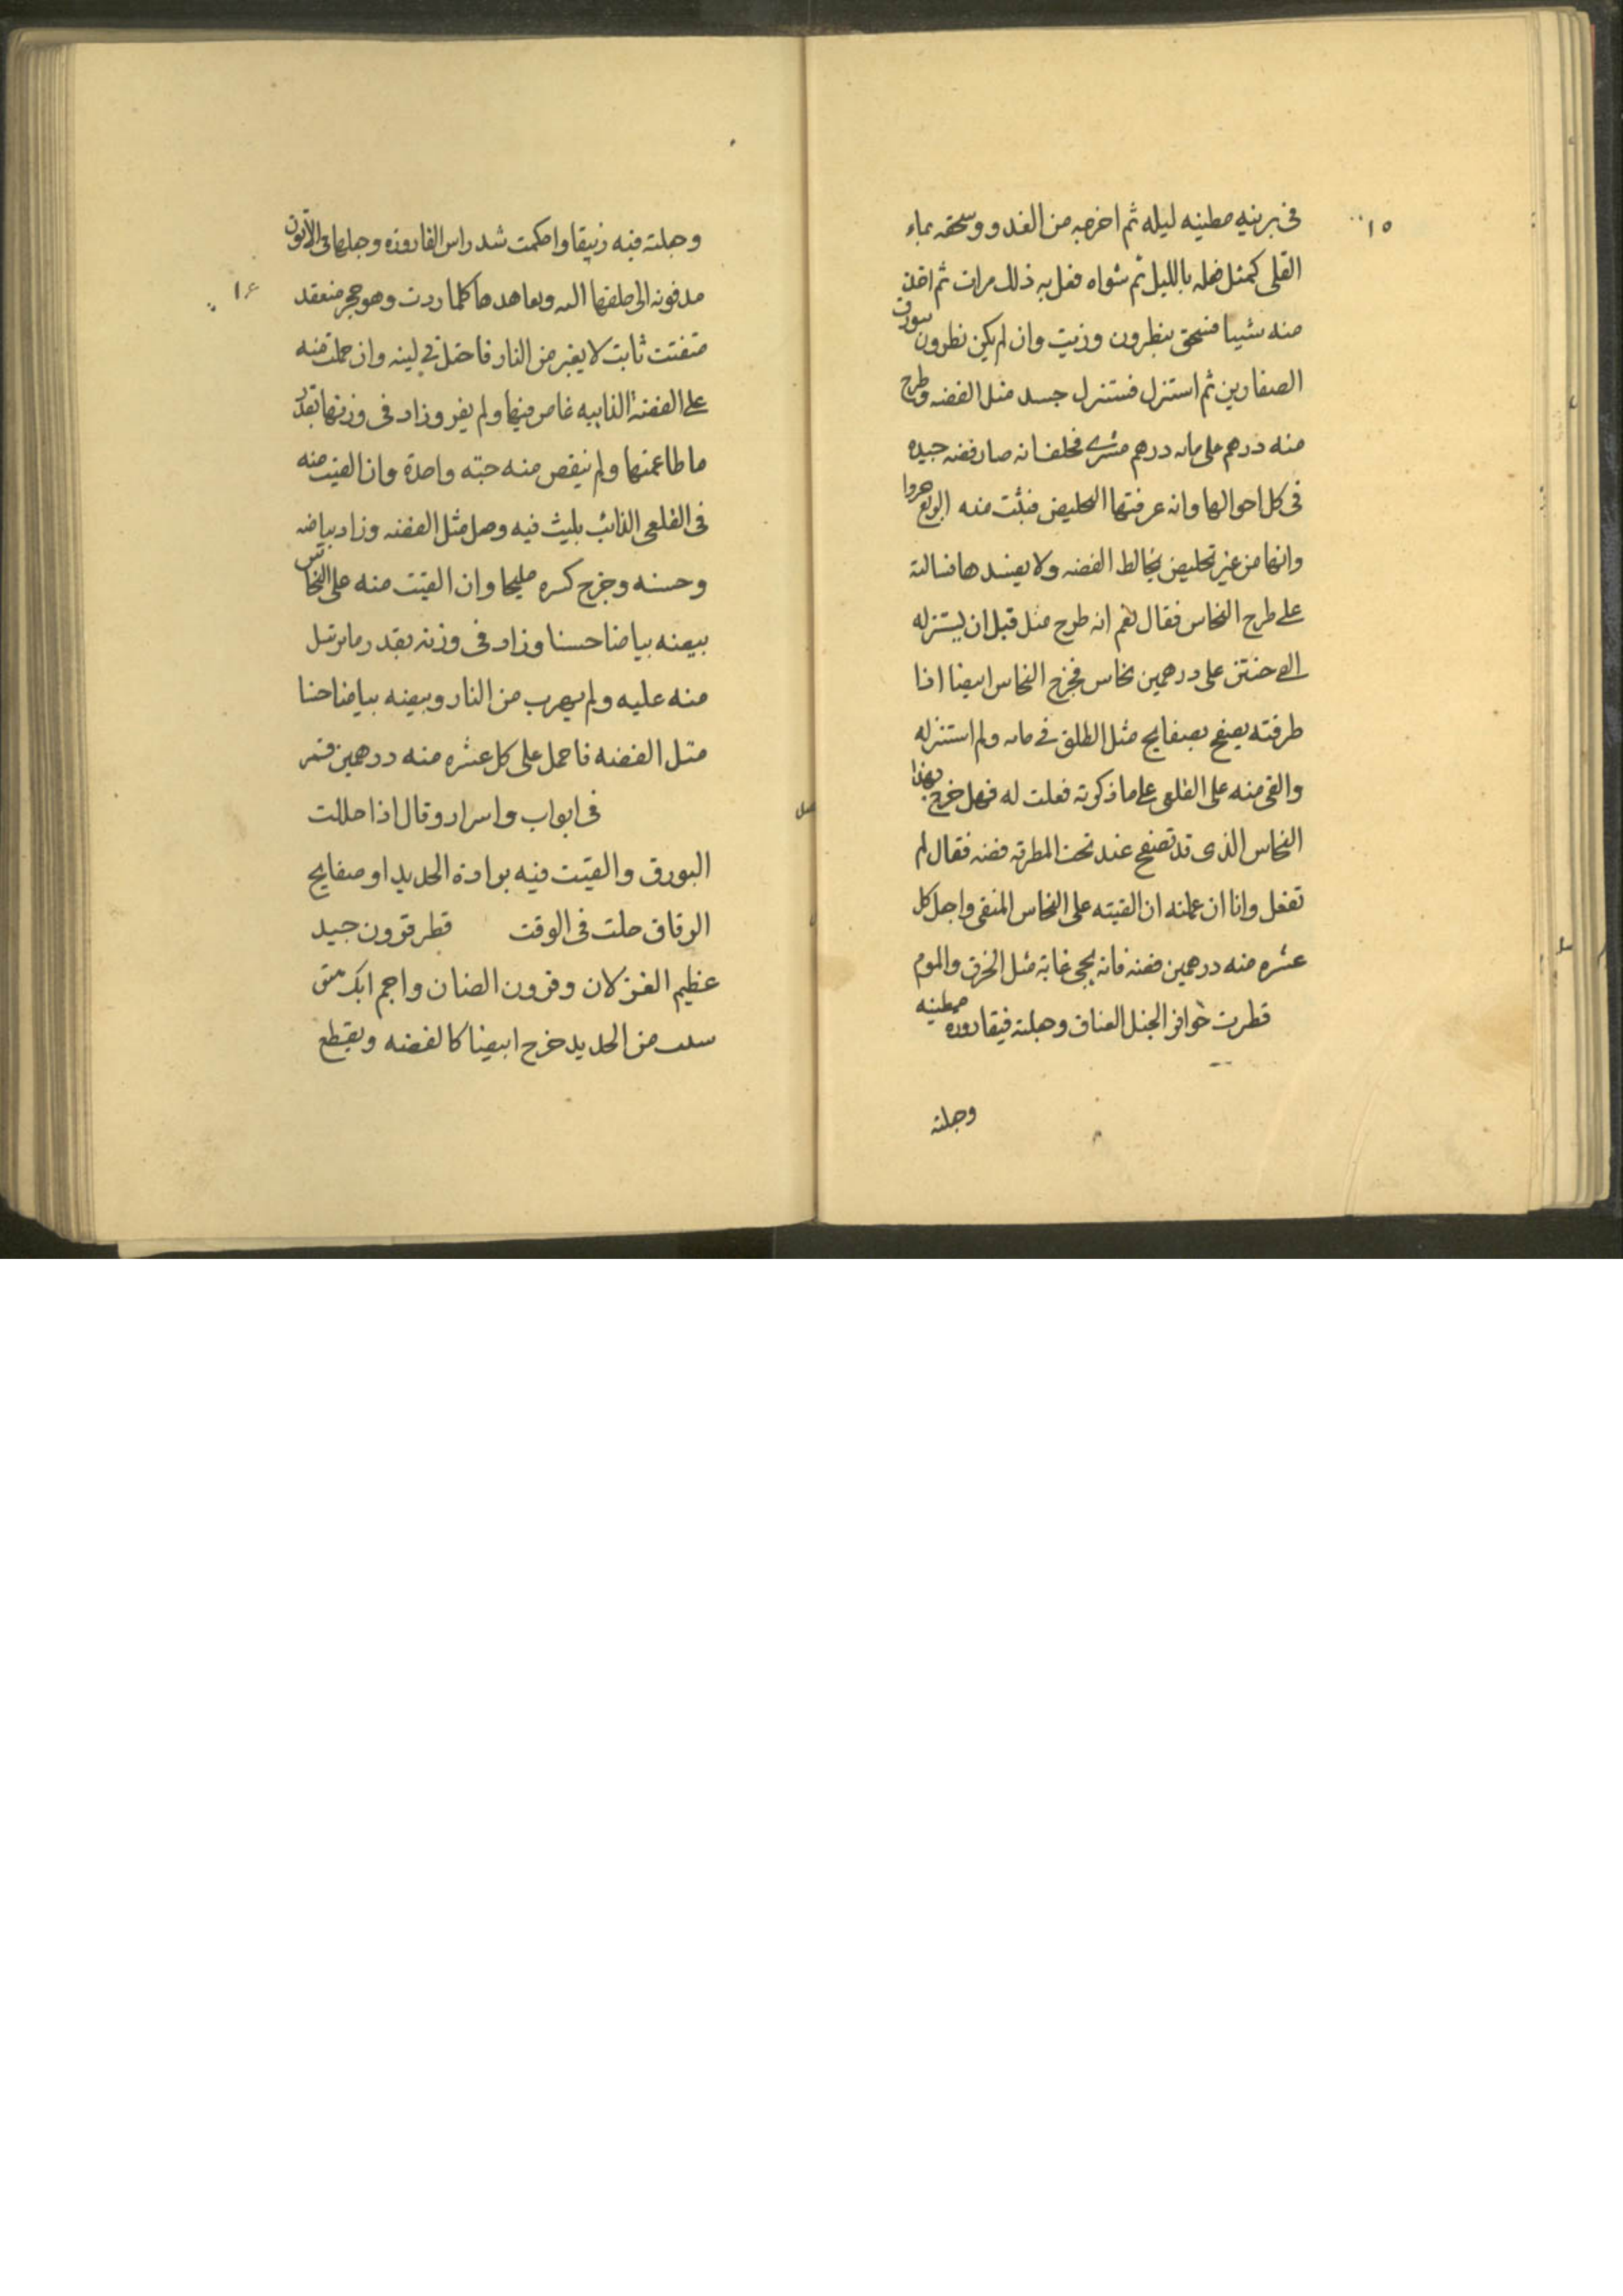 ١٥
فى برنيه مطينه ليله ثم اخرجه من الغد و وسحقه بماء
القلى كمثل فعله بالليل ثم شواه فعل به ذلك مرات ثم اخذ
منه شيا فسحق بنطرون وزيت وان لم يكن نطرون ببورق
الصفارين ثم استنزل فستنزل جسد مثل الفضه وطرح
منه درهم على مايه درهم مشترى فحلف انه صار فضه جيده
فى كل احوالها وانه عرفتها التخليص فبثت منه
وانها من غير تخليص يخالط الفضه ولا يفسدها فسالته
على طرح النحاس فقال نعم انه طرح مثل قبل ان يستنزله
الى حنتن على درهمين نحاس فخرج النحاس ابيضا اذا
طرقته يصفح بصفايح مثل الطلق فى مايه ولم استنزله
والقى منه على القلعى على ما ذكرته فعلت له فهل خرج بهذا
النحاس الذى قد تصفح عند تحت المطرقه فضه فقال لم
تفعل وانا ان عملته ان القيته على النحاس المنقى واجعل كل
عشره منه درهمين فضه فانه يجى غاية مثل الخرق والموم
قطرت حوافر الخيل العتاق وجعلته فيقاروره مطينه
وجعلته
١٤
وجعلته فيه زيبقا واحكمت شد راس القاروره وجعلها فى الأتون
مدفونه الى حلقها اليه وتعاهدها كلما ردت وهو حجر منعقد
متفتت ثابت لا يفر من النار فاحتل فى لينه وان حملت منه
على الفضة الذايبه غاص فيها ولم يفر وزاد فى وزنها بقدر
ما طاعمتها ولم ينقص منه حبّه واحدة وان القيت منه
فى القلعى الذائب يلبث فيه وصل مثل الفضه وزاد بياضه
وحسنه وخرج كسره مليحا وان القيت منه على النحاس
بيضه بياضا حسنا وزاد فى وزنه بقدر ما ترسل
منه عليه ولم يهرب من النار وبيضه بياضا حسنا
مثل الفضه فاحمل على كل عشره منه درهمين قمر
فى ابواب واسرار وقال اذا حللت
البورق والقيت فيه برادة الحديد او صفايح
الرقاق حلت فى الوقت قطر قرون جيد
عظيم الغزلان وقرون الضان واجم
من الحديد خرج ابيضا كالفضه ويقطع